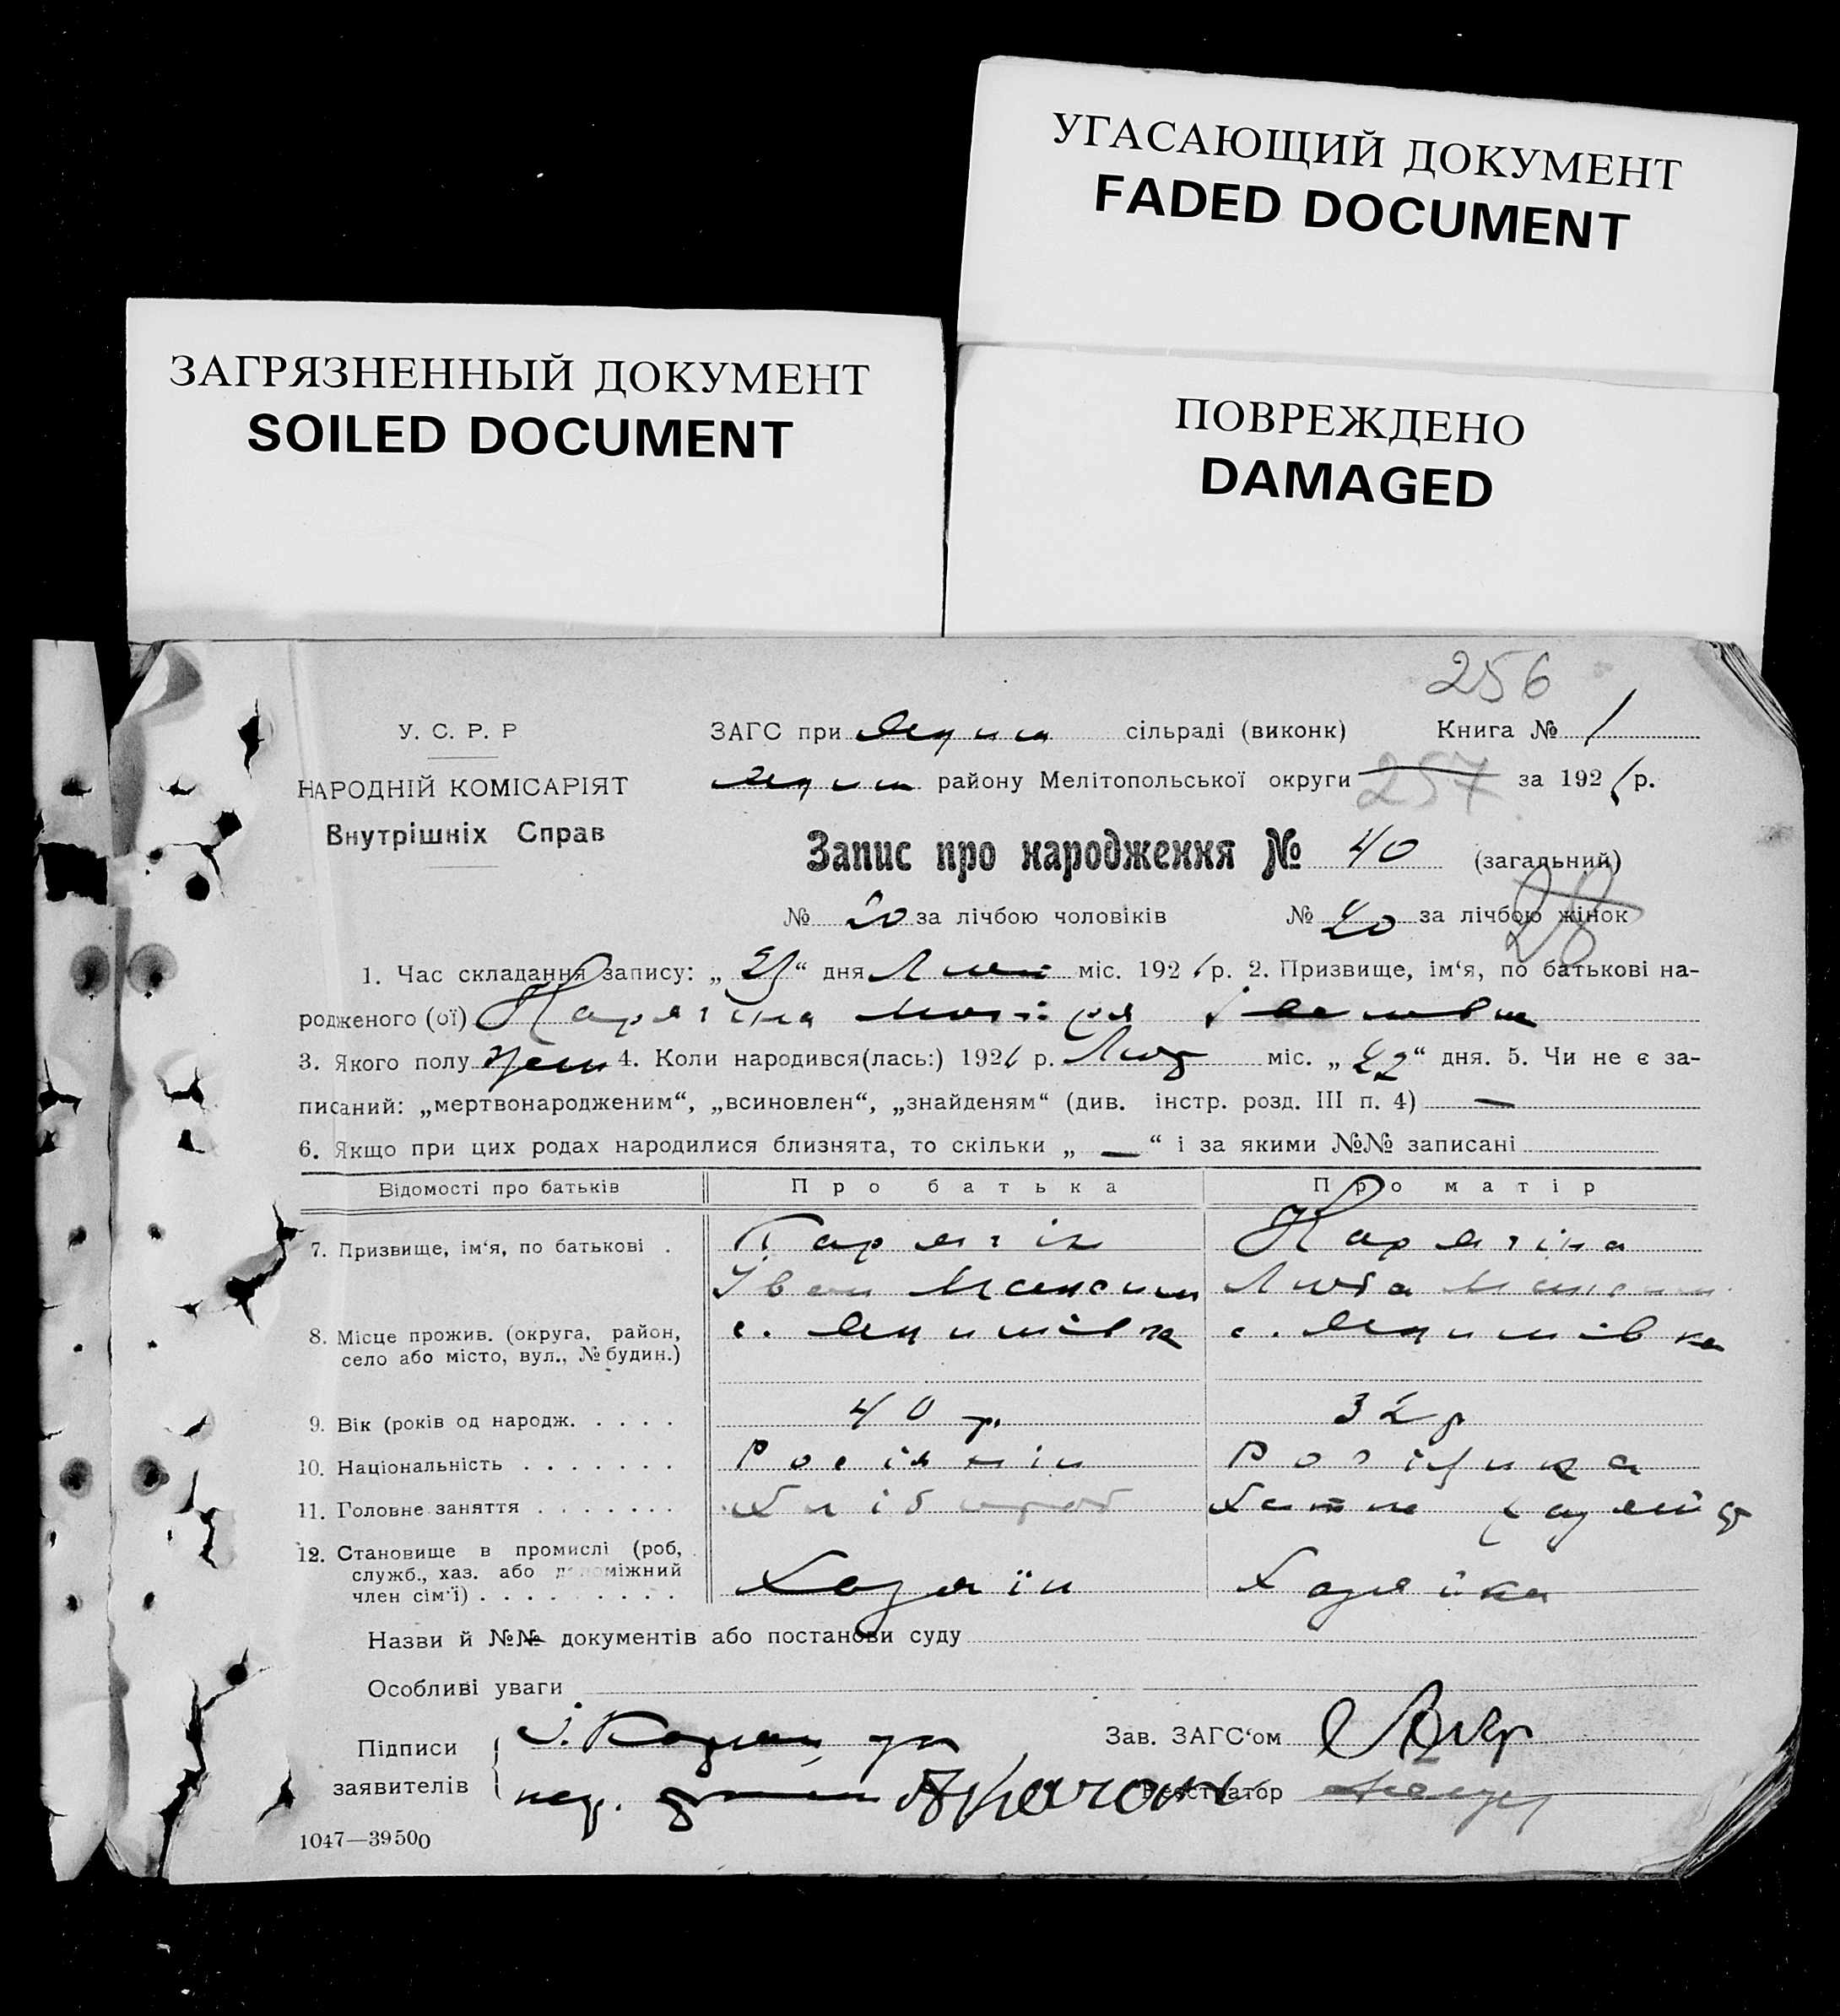 УГАСАЮЩИЙ ДОКУМЕНТ
FADED DOCUMENT
ЗАГРЯЗНЕННЫЙ ДОКУМЕНТ
SOILED DOCUMENT
ПОВРЕЖДЕНО
DAMAGED
256
У. С. Р. Р
НАРОДНІЙ КОМІСАРІЯТ
Внутрішніх Справ
ЗАГС при сільраді (виконк) Книга № 1
району Мелітопольської округи 257 за 192 р.
Запис про народження № 40 (загальний)
№ 20 за лічбою чоловіків № 20 за лічбою жінок
28
1. Час складання запису: „ “ дня міс. 192 р. 2. Призвище, ім‘я, по батькові на-
родженого (ої) Карягіна Іванівна
3. Якого полу жен 4. Коли народився(лась:) 192 р. Лют міс. „22“ дня. 5. Чи не є за-
писаний: „мертвонародженим“, „всиновлен“, „знайденям“ (див. інстр. розд. III п. 4) —
6. Якщо при цих родах народилися близнята, то скільки „ — “ і за якими №№ записані
Відомості про батьків Про батька Про матір
7. Призвище, ім‘я, по батькові . Карягін Карягіна
Іван Максим Люба Максим
8. Місце прожив. (округа, район, село або місто, вул., № будин.) с. Якимівка с. Якимівка
9. Вік (років од народж. . . . . 40 р. 32 р
10. Національність . . . . . . . Росіянін Росіянка
11. Головне заняття . . . . . . . Хлібороб Хатне
12. Становище в промислі (роб, служб., хаз. або допоміжний член сім‘ї) . . . . . . . . . Хазяїн Хазяйка
Назви й №№ документів або постанови суду
Особливі уваги
Підписи
заявителів
Зав. ЗАГС‘ом
Реєстратор
1047—39500